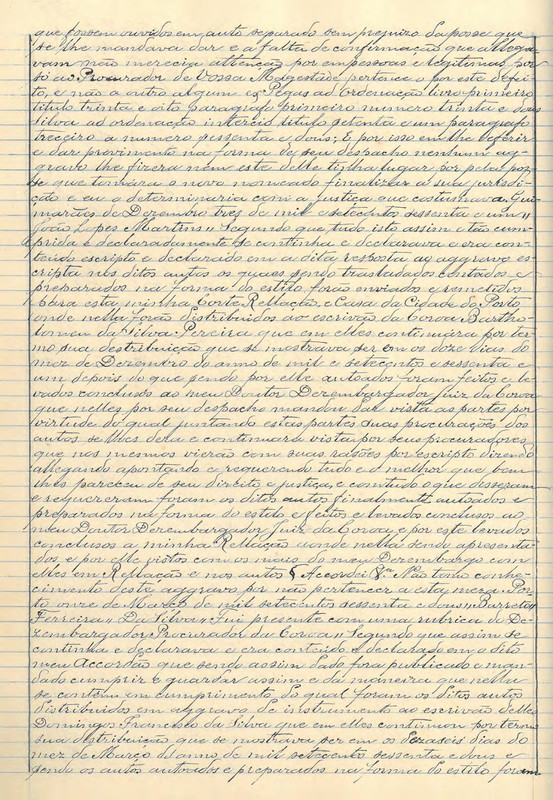 que fossem ouvidos em auto separado sem prejuizo da posse que
se lhe mandava dar e a falta de confirmação que allega-
vam não merecia attenção por em pessoas e legitimas por
só ao Procurador de Vossa Magestade pertence o por este defei-
to, e não a outro algum ex Pegas ad Ordenação livro primeiro
titulo trinta e oito paragrafo primeiro numero trinta e dous
Silva ad ordenação in tercio titulo setenta e um paragrafo
treceiro a numero sessenta e dous; E por isso em lhe deferir
e dar provimento na forma de seu despacho nenhum ag-
gravo lhe fizera nem este delle tinha lugar por pelas
se que tornára o novo nomeado finalizar a sua jurisdi-
ção e eu o determinaria com a justiça que costumava. Gui-
marães de Dezembro tres de mil e setecentos sessenta e um "
João Lopes Martins " Segundo que tudo isto assim e tão cum-
prida e declaradamente se continha e declarava e era con-
teudo escripto e declarado em a dita resposta ao aggravo es-
cripta nos ditos autos os quaes sendo trasladados contados e
preparados na forma do estilo forão enviados e remetidos
para esta minha Corte Rellação e Casa da Cidade do Porto
onde nella forão distribuidos ao escrivão da Coroa Bartho-
lomeu da Silva Pereira que em elles continuára por ter-
mo sua destribuição que se mostrava ser em os doze dias do
mez de Dezembro do anno de mil e setecentos e sessenta e
um depois do que sendo por elle autoados foram feitos e le-
vados conclusos ao meu Doutor Dezembargador Juiz da Coroa
que nelles por seu despacho mandou dar vista as partes por
virtude do qual juntando estas partes suas procurações dos
autos se lhes dera e continuára vista por seus procuradores
que nos mesmos vierão com suas rasões por escripto dizendo
allegando apontando e requerendo tudo e o melhor que bem
lhes pareceu de seu direito e justiça, e com tudo o que disseram
e requereram foram os ditos autos finalmente autoados e
preparados na forma do estilo e feitos e levados conclusos ao
meu Doutor Dezembargador Juiz da Coroa e por este levados
conclusos a minha Rellação aonde nella sendo apresenta-
dos e por elle vistos com os mais do meu Dezembargo com
elles em Rellação e nos autos Acordei Não tomo conhe-
cimento deste aggravo por não pertencer a esta meza. Por-
to onze de Março de mil setecentos sessenta e dous " Barreto "
Ferreira " Da Silva " Fui presente com uma rubrica do De-
zembargador Procurador da Coroa " Segundo que assim se
continha e declarava e era conteúdo e declarado em o dito
meu Accordão que sendo assim dado fora publicado e man-
dado cumprir e guardar assim e da maneira que nelle
se contem em cumprimento do qual foram os ditos autos
distribuidos em aggravo de instrumento ao escrivão delles
Domingos Francisco da Silva que em elles continuou por termo
sua distribuição que se mostrava ser em os dezaseis dias do
mez de Março do anno de mil setecentos sessenta e dous e
sendo os autos autoados e preparados na forma do estilo foram